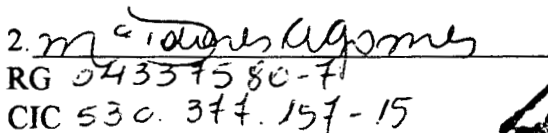 2. Mª Tavares A Gomes
RG 04337580-7
CIC 530.377.157-15